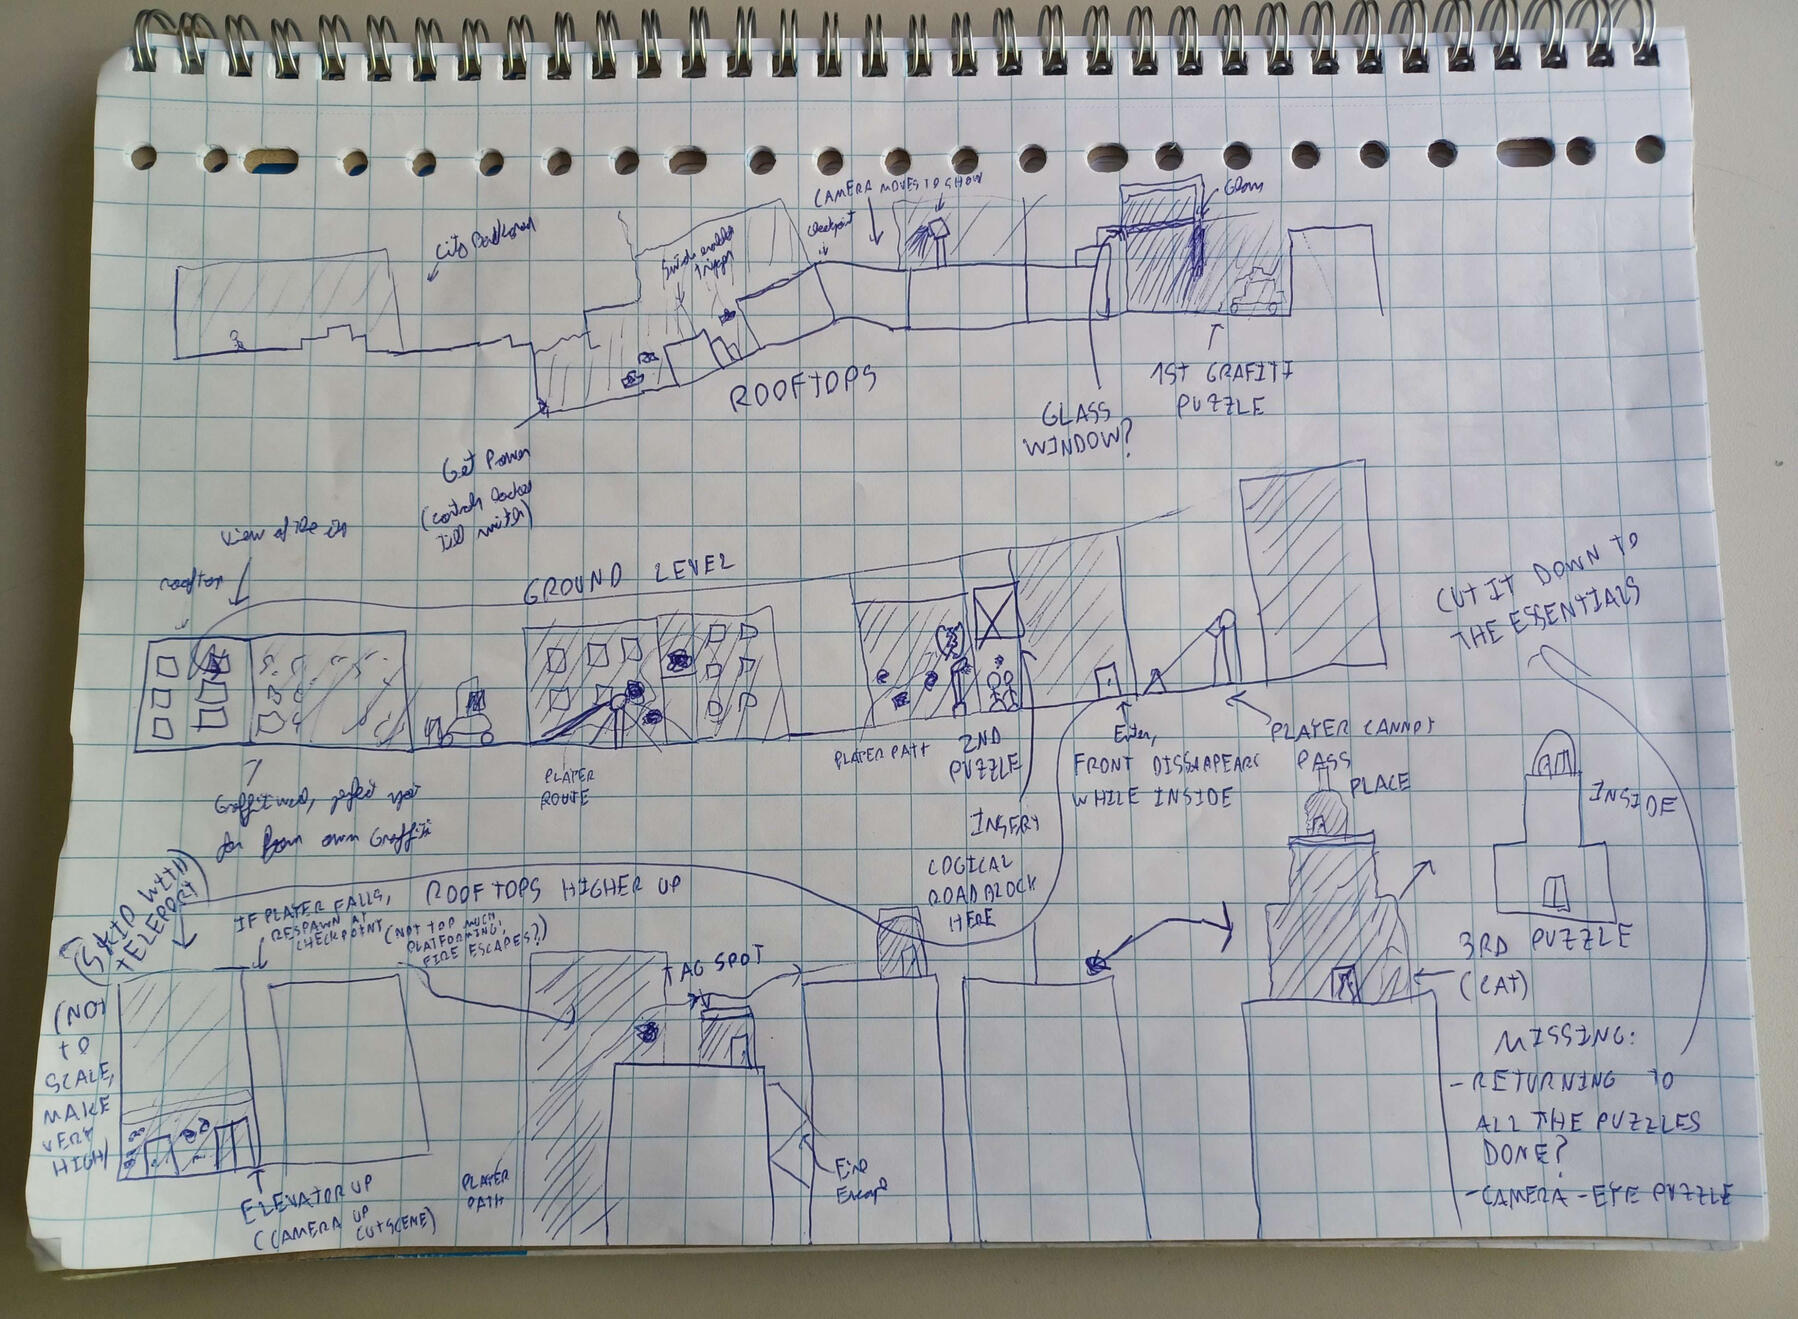 CAMERA MOVES TO SHOW
checkpoint
City
trigger
ROOFTOPS
GLASS
WINDOW?
1ST GRAFITI
PUZZLE
Get Power
(controls locked
till switch)
view of the
rooftop
GROUND LEVEL
CUT IT DOWN TO
THE ESSENTIALS
PLAYER
ROUTE
PLAYER PATH
2ND
PUZZLE
Enter,
FRONT DISSAPEARS
WHILE INSIDE
PLAYER CANNOT
PASS
PLACE
INSIDE
Graffiti wall, perfect spot
for own Graffiti
INSERT
LOGICAL
ROADBLOCK
HERE
(SKIP WITH
TELEPORT)
IF PLAYER FALLS,
RESPAWN AT
CHECKPOINT
ROOFTOPS HIGHER UP
(NOT TOO MUCH
PLATFORMING,
FIRE ESCAPES?)
TAG SPOT
(NOT
TO
SCALE,
MAKE
VERY
HIGH)
ELEVATOR UP
(CAMERA UP
CUTSCENE)
PLAYER
PATH
Fire
Escape
3RD PUZZLE
(CAT)
MISSING:
- RETURNING TO
ALL THE PUZZLES
DONE?
- CAMERA - EYE PUZZLE